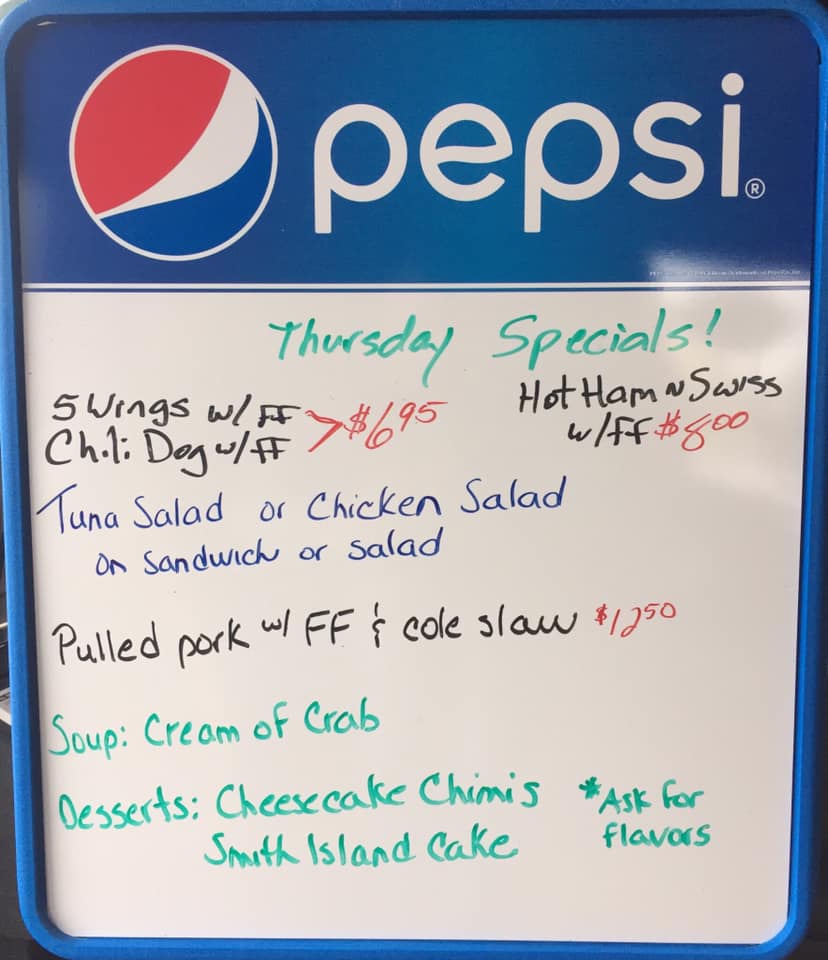 pepsi®
Thursday Specials!
5 Wings w/ FF
Chili Dog w/ff
> $6.95
Hot Ham n Swiss
w/ff $8.00
Tuna Salad or Chicken Salad
on Sandwich or salad
Pulled pork w/ FF & cole slaw $12.50
Soup: Cream of Crab
Desserts: Cheesecake Chimis
Smith Island Cake
*Ask for
flavors